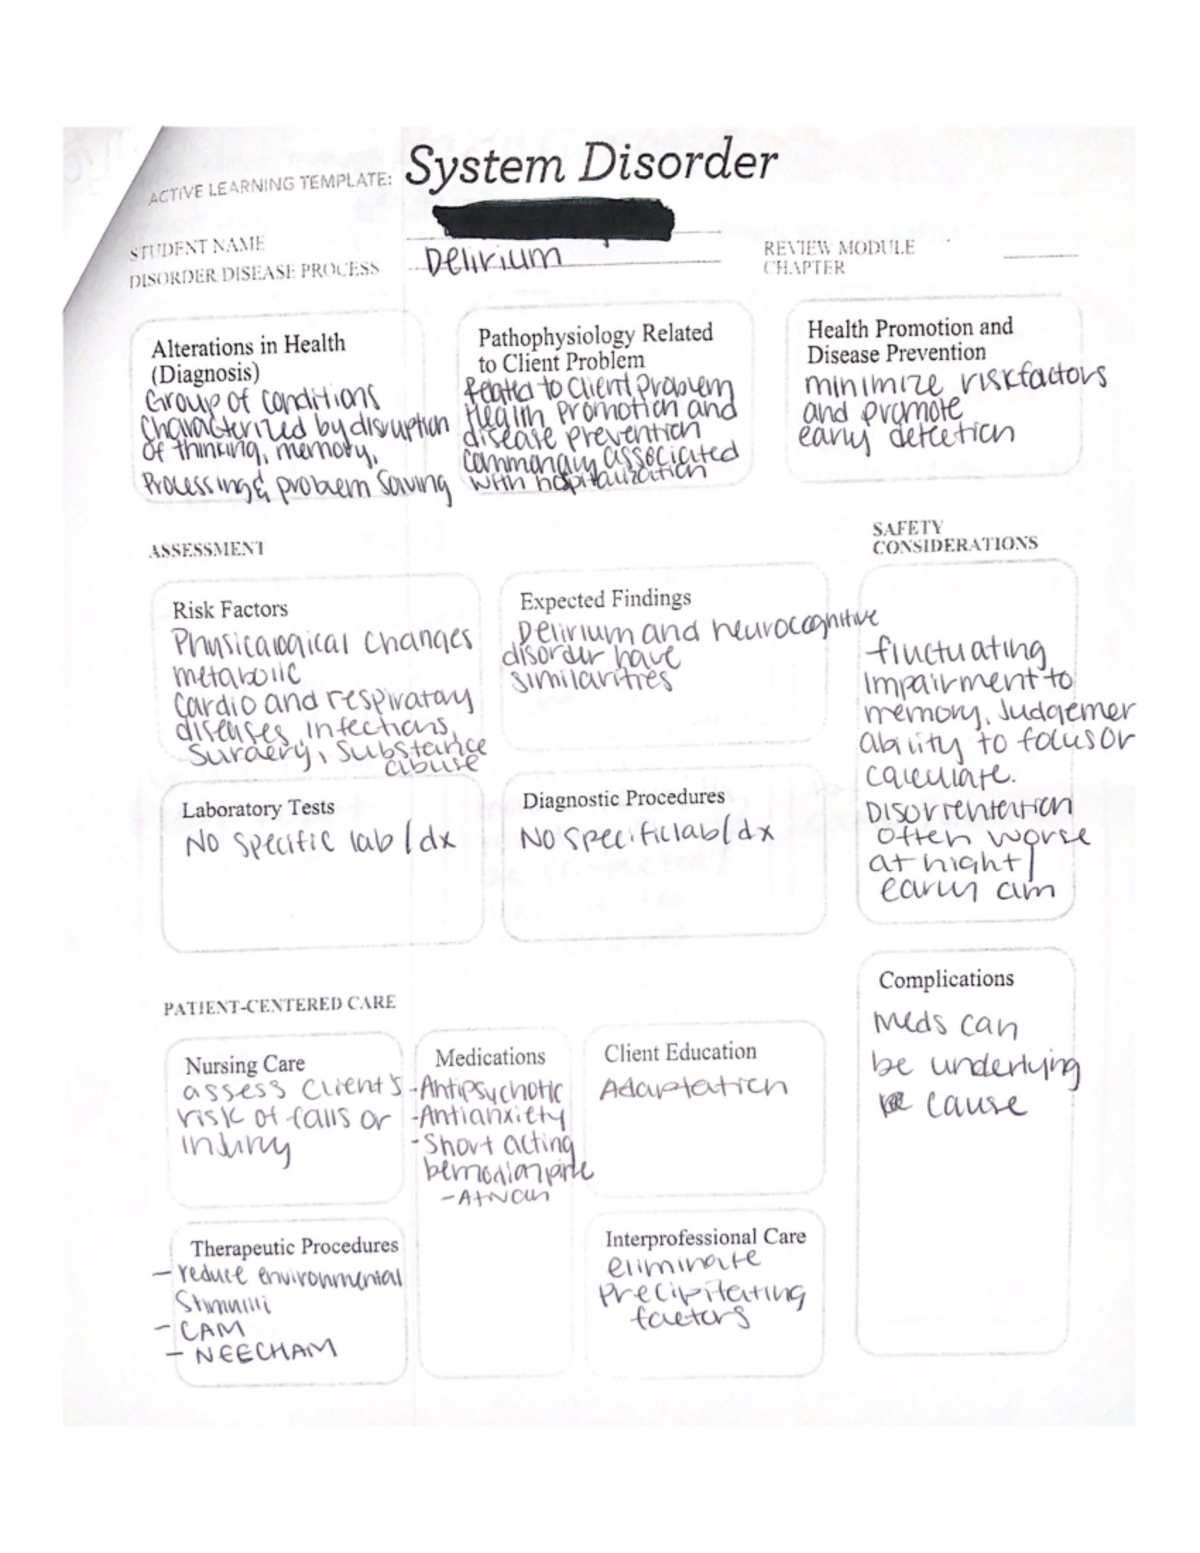 ACTIVE LEARNING TEMPLATE: System Disorder
STUDENT NAME
DISORDER DISEASE PROCESS Delirium
REVIEW MODULE
CHAPTER
Alterations in Health
(Diagnosis)
Group of conditions
characterized by disruption
of thinking, memory,
Processing & problem Solving
Pathophysiology Related
to Client Problem
Related to Client Problem
Health Promotion and
disease prevention
commonly associated
with hospitalization
Health Promotion and
Disease Prevention
minimize risk factors
and promote
early detection
ASSESSMENT
SAFETY
CONSIDERATIONS
Risk Factors
Physicalogical changes
metabolic
Cardio and respiratory
diseases, infections,
Surgery, Substance
abuse
Expected Findings
Delirium and neurocognitive
disorder have
similarities
fluctuating
Impairment to
memory, Judgemen
ability to focus or
calculate.
Disorrentation
often worse
at night /
early am
Laboratory Tests
No Specific lab / dx
Diagnostic Procedures
No Specific lab / dx
Complications
Meds can
be underlying
cause
PATIENT-CENTERED CARE
Nursing Care
assess client's
risk of falls or
injury
Medications
-Antipsychotic
-Antianxiety
-Short acting
- Ativan
Client Education
Adaptation
Therapeutic Procedures
- reduce environmental
Stimulli
- CAM
- NEECHAM
Interprofessional Care
eliminate
precipitating
factors